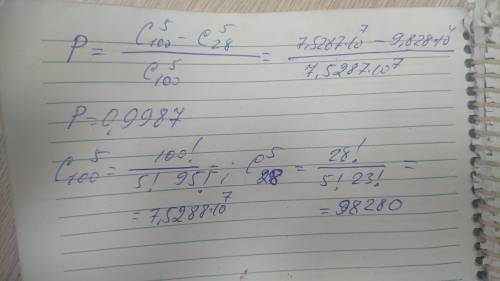 P = (C₁₀₀⁵ - C₂₈⁵) / C₁₀₀⁵ = (7,5287·10⁷ - 9,828·10⁴) / 7,5287·10⁷
P = 0,9987
C₁₀₀⁵ = 100! / 5! 95! = ; C₂₈⁵ = 28! / 5! 23! =
= 7,5288·10⁷ = 98280